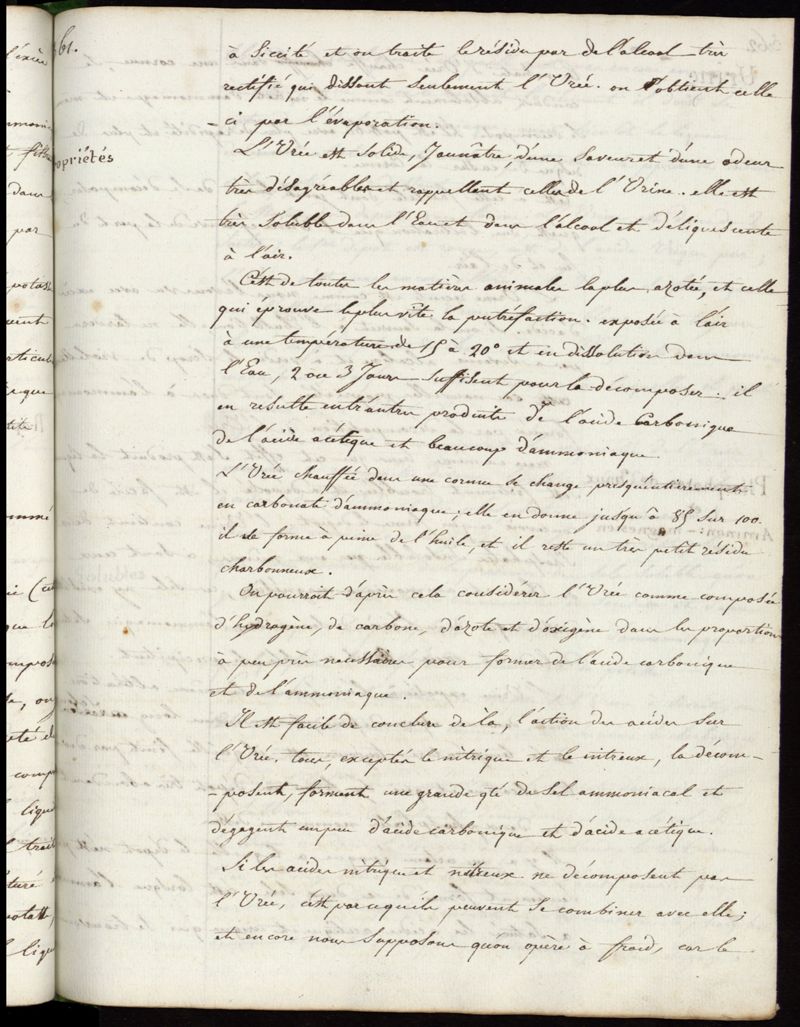 61.
à Siccité et on traite le résidu par de l'alcool très
rectifié qui dissout seulement l'Urée. on l'obtient celle
- ci par l'évaporation.
opriétés
L'Urée est Solide, Jaunâtre, d'une Saveur et d'une odeur
très désagréables et rappellent celles de l'Urine. elle est
très Soluble dans l'Eau et dans l'alcool et déliquescente
à l'air.
C'est de toutes les matières animales la plus azotée, et celle
qui éprouve le plus vîte la putréfaction. exposée à l'air
à une température de 15 à 20° et en dissolution dans
l'Eau, 2 ou 3 Jours Suffisent pour la décomposer. il
en resulte entr'autres produits de l'acide Carbonique
de l'acide acétique et beaucoup d'ammoniaque.
L'Urée chauffée dans une cornue Se change presqu'entierement
en carbonate d'ammoniaque; elle en donne jusqu'à 85 Sur 100.
il se forme à peine de l'huile, et il reste un très petit résidu
charbonneux.
On pourrait d'après cela considérer l'Urée comme composée
d'hydrogène, de carbone, d'azote et d'oxigène dans les proportions
à peu près nécessaires pour former de l'acide carbonique
et de l'ammoniaque.
Il est facile de conclure de là, l'action des acides Sur
l'Urée. tous, exceptés le nitrique et le nitreux, la décom-
- posent, forment une grande qté de Sel ammoniacal et
dégagent un peu d'acide carbonique et d'acide acétique.
Si les acides nitrique et nitreux ne décomposent pas
l'Urée, c'est parcequ'ils peuvent Se combiner avec elle;
et encore nous Supposons qu'on opère à froid, car le